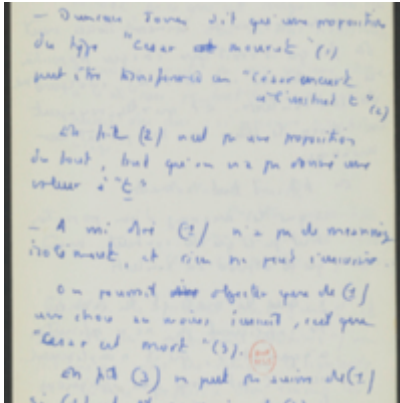 — Duncan Jones dit qu'une proposition
du type "César mourut" (1)
peut être transformée en "César meurt
à l'instant t" (2)
En fait (2) n'est pas une proposition
du tout, tant qu'on n'a pas donné une
valeur à "t"
— A mi (1) n'a pas de meaning
isolément, et rien ne peut s'ensuivre
On pourrait objecter que de (1)
une chose au moins s'ensuit, c'est que
"César est mort" (3).
En fait (3) ne peut pas suivre de (1)